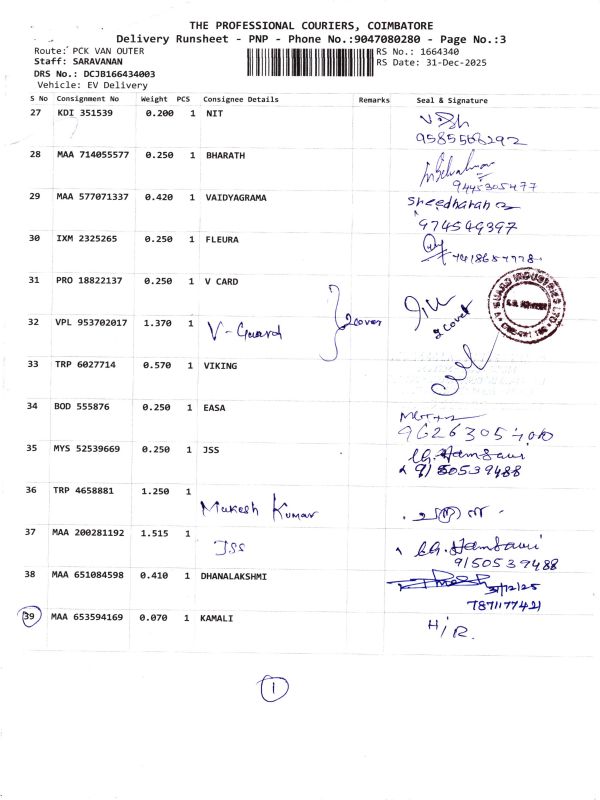 THE PROFESSIONAL COURIERS, COIMBATORE
Delivery Runsheet - PNP - Phone No.:9047080280 - Page No.:3
Route: PCK VAN OUTER RS No.: 1664340
Staff: SARAVANAN RS Date: 31-Dec-2025
DRS No.: DCJB166434003
Vehicle: EV Delivery
S No Consignment No Weight PCS Consignee Details Remarks Seal & Signature
27 KDI 351539 0.200 1 NIT
9585566292
28 MAA 714055577 0.250 1 BHARATH
9445305477
29 MAA 577071337 0.420 1 VAIDYAGRAMA Sreedharan
974549397
30 IXM 2325265 0.250 1 FLEURA
31 PRO 18822137 0.250 1 V CARD
2 cover 2 cover
32 VPL 953702017 1.370 1 V-Guard
33 TRP 6027714 0.570 1 VIKING
34 BOD 555876 0.250 1 EASA
35 MYS 52539669 0.250 1 JSS G. Hamsavi
9150539488
36 TRP 4658881 1.250 1 Mukesh Kumar
37 MAA 200281192 1.515 1 JSS G. Hamsavi
9150539488
38 MAA 651084598 0.410 1 DHANALAKSHMI 31/12/25
7871177421
39 MAA 653594169 0.070 1 KAMALI H/R.
1